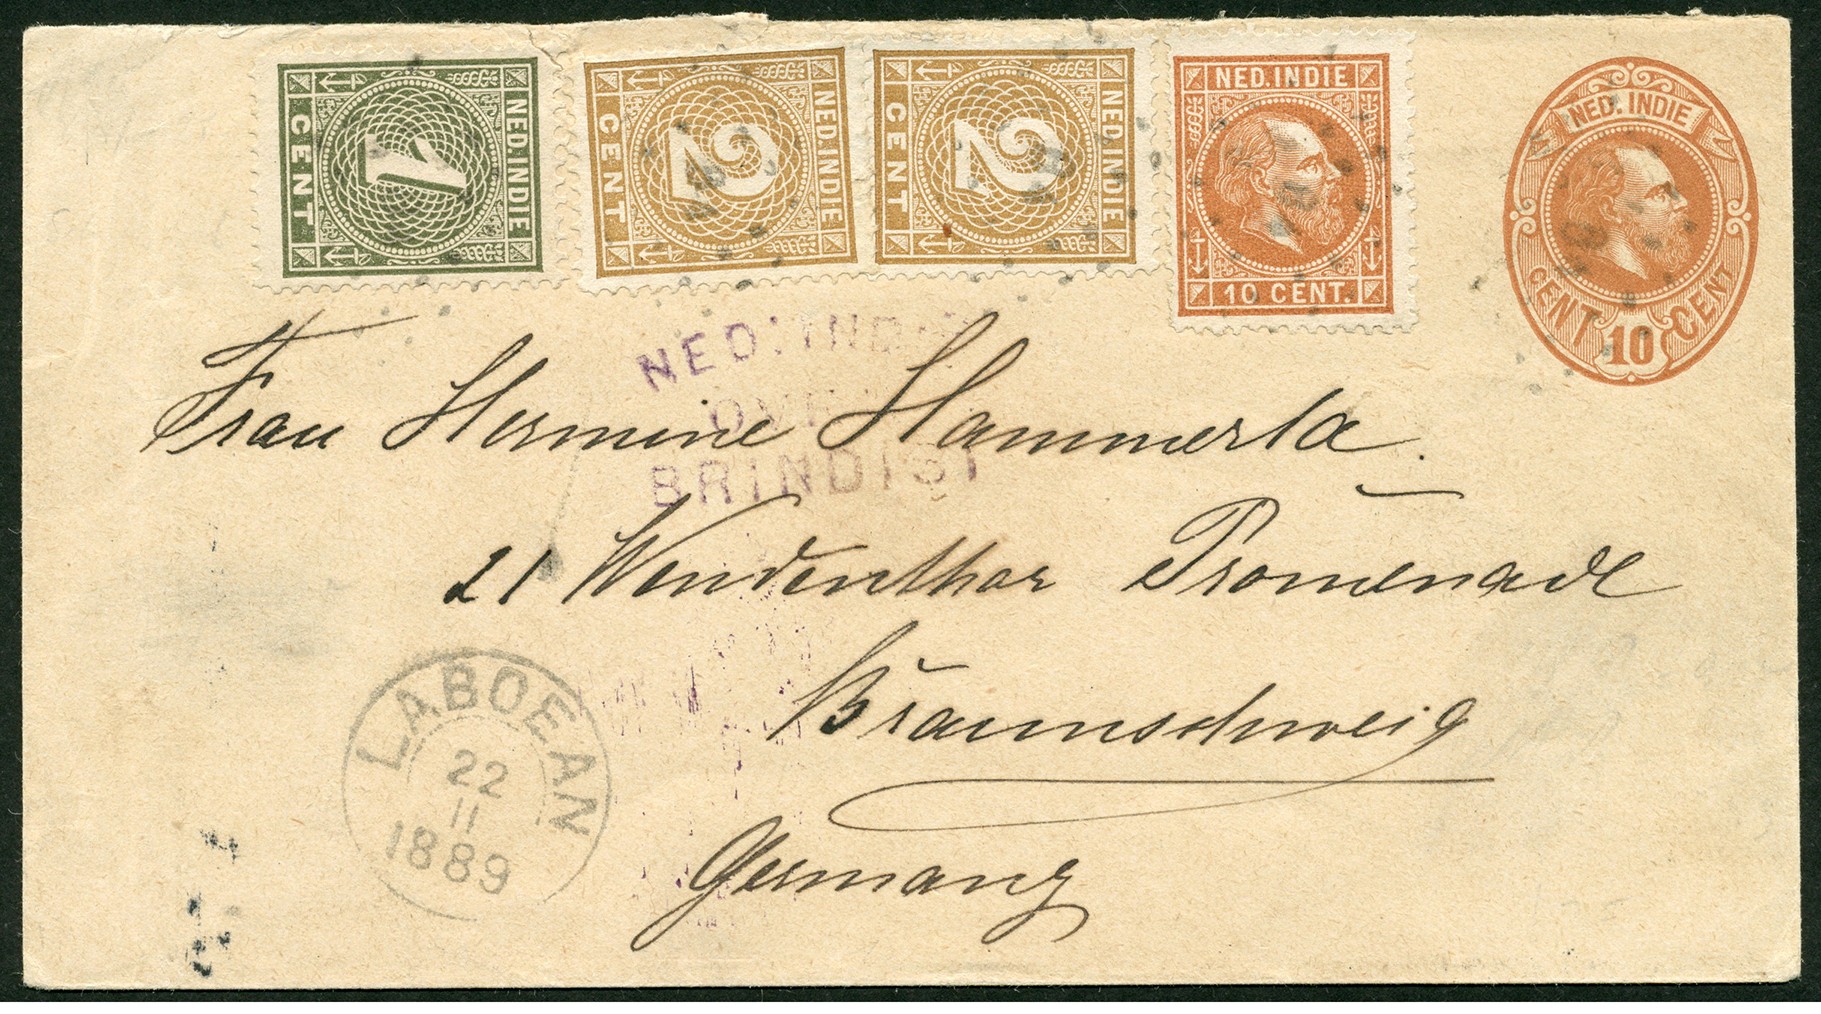 NED. INDIE
1
CENT
NED. INDIE
2
CENT
NED. INDIE
2
CENT
NED. INDIE
10 CENT.
NED. INDIE
CENT 10 CENT
NED. INDIE
OVER
BRINDISI
Frau Hermine Hammerla.
21 Wendenthor Promenade
Braunschweig
Germany
LABOEAN
22
11
1889